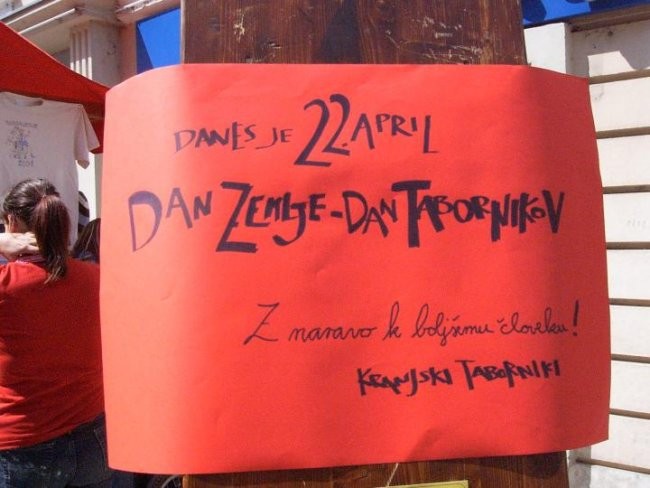 DANES JE 22. APRIL
DAN ZEMLJE - DAN TABORNIKOV
Z naravo k boljšemu človeku!
KRANJSKI TABORNIKI